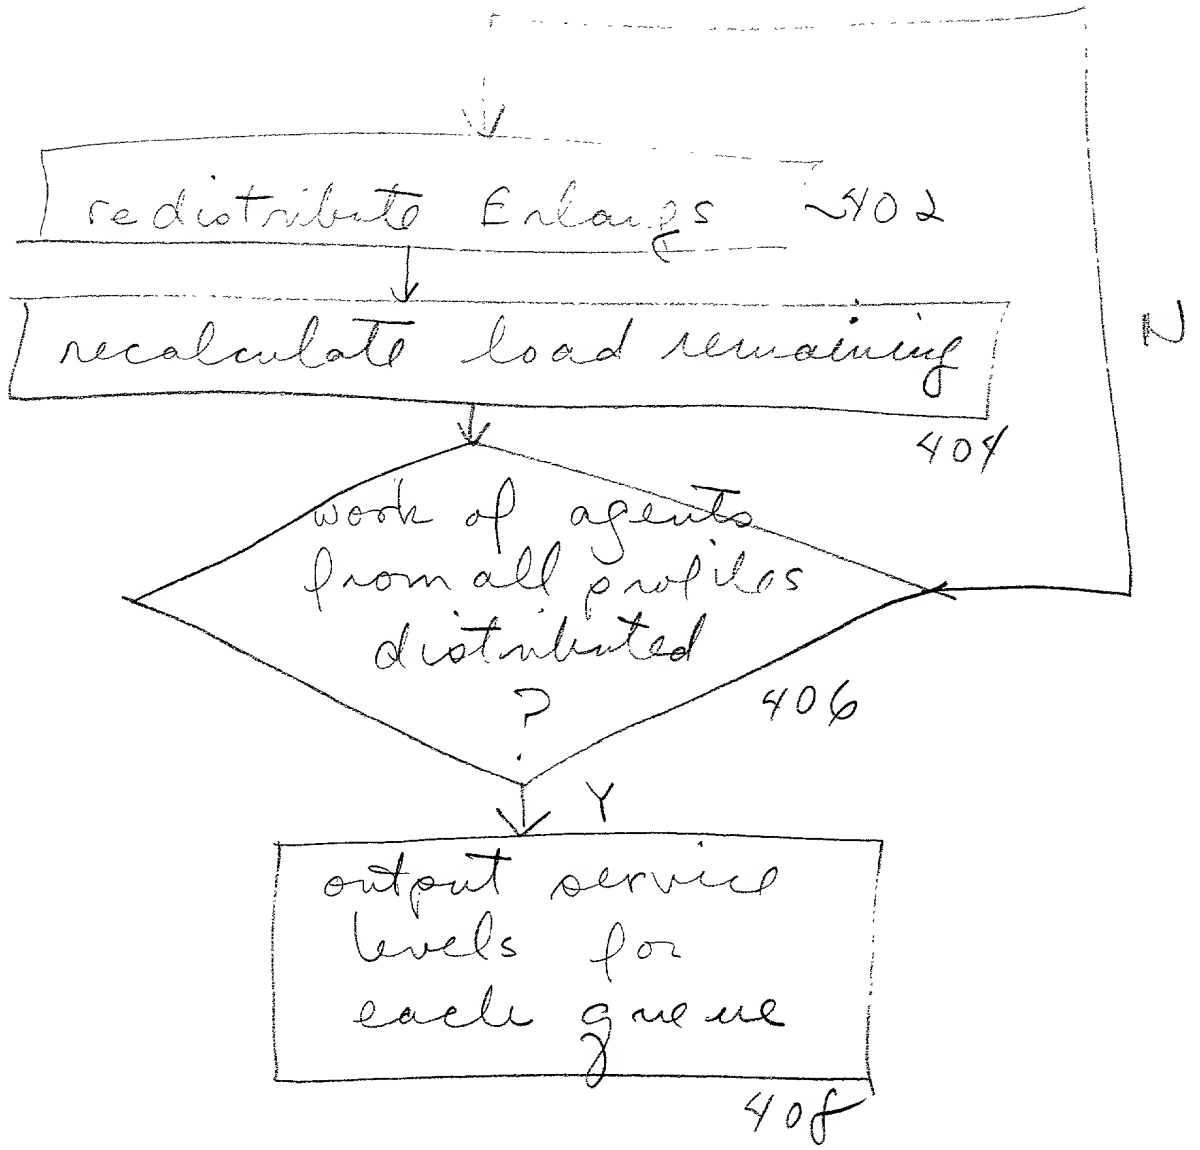 redistribute Erlangs 402
recalculate load remaining
N
404
work of agents
from all profiles
distributed
?
406
Y
output service
levels for
each queue
408